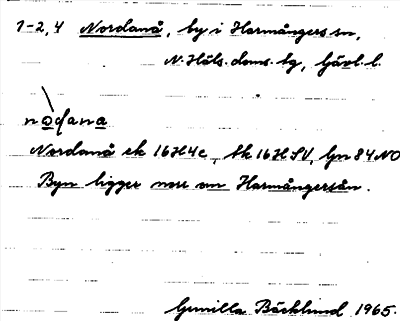 1-2, 4 Nordanå, by i Harmångers sn,
N. Häls. doms. tg, Gävl. l.
nodana
Nordanå ek 16H4c, tk 16H SV, Gn 84 NO
Byn ligger norr om Harmångersån.
Gunilla Bäcklund 1965.